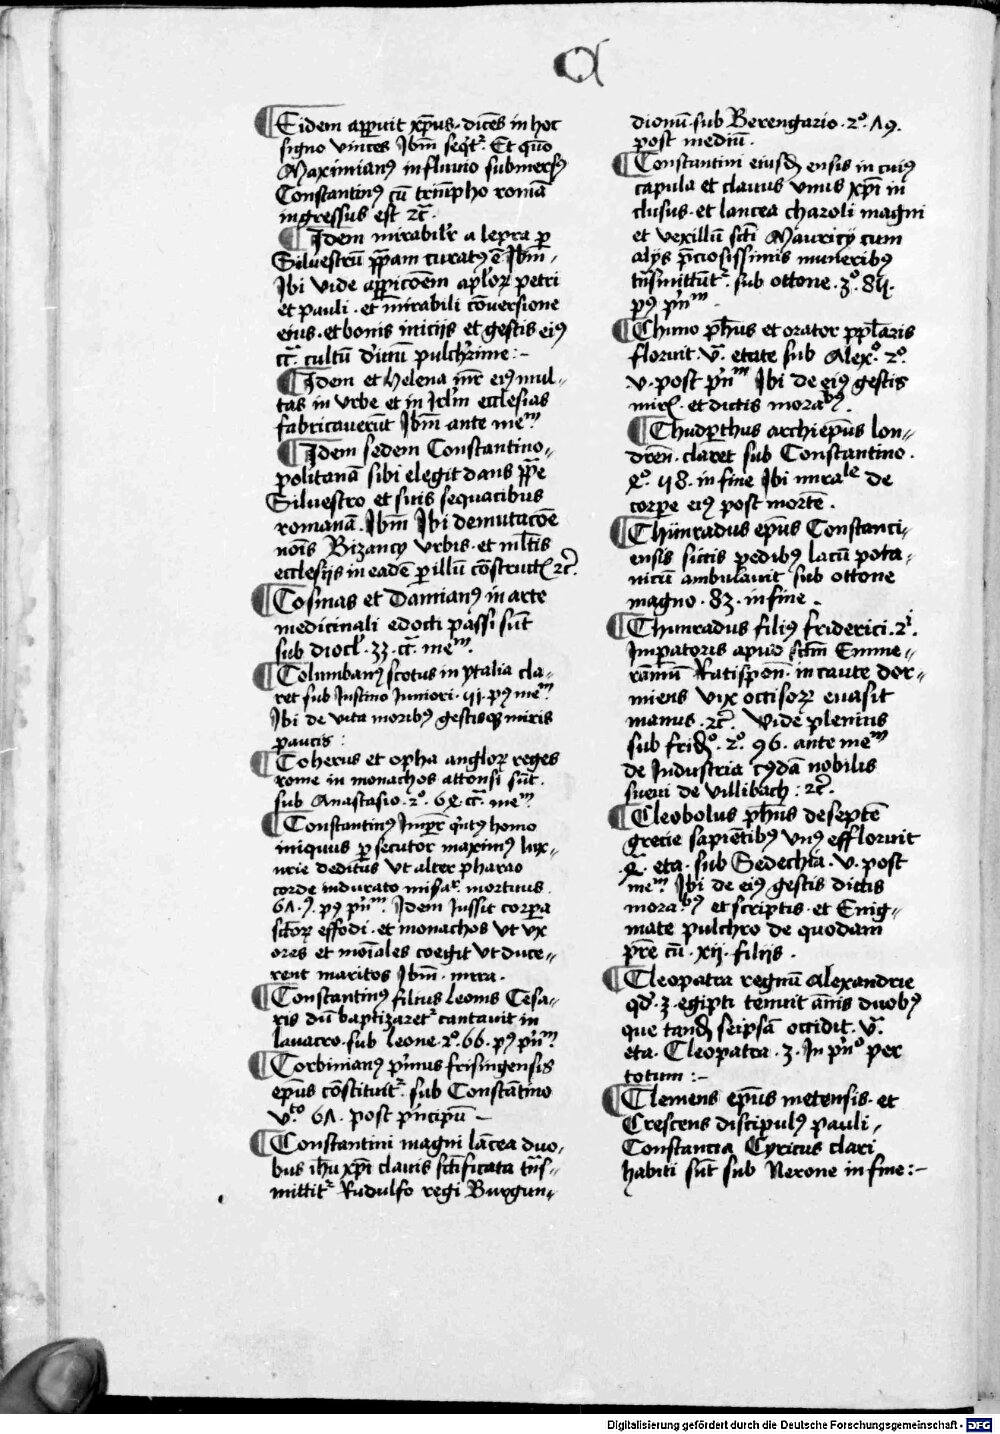 C
¶ Eidem apparuit xp̄us. dicēs in hoc
signo vinces Ibm̄ seqt̄. Et quō
Maximian⁹ in fluvio submers⁹
Constantin⁹ cū triūpho romā
ingressus est ⁊c̄.
¶ Idem mirabilr̄ a lepra p
Siluestrū pp̄am curat⁹ ē Ibm̄.
Ibi vide appicōem aplōꝝ petri
et pauli. et mirabili cōuersione
eius. et bonis inicijs et gestis ei⁹
cultū diuinū pulchrime :-
¶ Idem et Helena mr̄ ei⁹ mul-
tas in vrbe et in Irlm̄ ecclesias
fabricauerūt Ibm̄ ante meᵐ
¶ Idem sedem Constantino-
politanā sibi elegit dans pp̄e
Siluestro et suis sequacibus
romanā. Ibm̄ Ibi de mutacōe
nois Bizancy vrbis. et mltis
ecclesijs in eadē p illū cōstructꝭ ⁊c̄.
¶ Cosmas et Damian⁹ in arte
medicinali edocti passi sūt
sub diocl. 33. cc̄. meᵐ.
¶ Columban⁹ scotus in ytalia cla-
ret sub Iustino Iuniori. p⁹ meᵐ
Ibi de vita morib⁹ gestisqꝫ miris
paucis :
¶ Coherus et opha angloꝝ reges
rome in monachos attonsi sūt.
sub Anastasio. 2º. meᵐ
¶ Constantin⁹ Impr̄ qnt⁹ homo
iniquus psecutor maxim⁹ lux-
urie deditus vt alter pharao
corde indurato misar̄. mortuus.
6Λ. p⁹ pn̄ᵐ. Idem Iussit corpa
sctōꝝ effodi. et monachos vt vx
ores et moiales coegit vt duce-
rent maritos Ibm̄. infra.
¶ Constantin⁹ filius leonis Cesa-
ris dū baptizaret̄ cantauit in
lauacro. sub leone. 2º. 66. p⁹ pn̄ᵐ
¶ Corbinian⁹ pmus frisingensis
epūs cōstituit̄. sub Constātino
vᵗᵒ 6Λ. post pncipū -
¶ Constantini magni lācea duo-
bus ihū xpī clauis sctīficata tns-
mittit̄ Rudulfo regi Burgun-
dionū. sub Berengario. 2º. Λ9.
post mediū.
¶ Constantini eiusdē ensis in cui⁹
capula et clauus vnus xpī in
clusus. et lancea charoli magni
et vexillū scti Mauricij cum
alijs pciosissimis munerib⁹
tnsmittūt̄. sub ottone. 3º. 8
p⁹ pn̄ᵐ.
¶ Chimo phūs et orator
floruit. v̄. etate sub Alex. 2º.
v. post pn̄ᵐ Ibi de ei⁹ gestis
mirꝭ. et dictis moraᵇ⁹.
¶ Chudpthus archiepūs lon-
dreñ. claret sub Constantino.
in fine Ibi miraˡᵉ de
corpe ei⁹ post mortē.
¶ Chünradus epūs Constanci-
ensis siccis pedib⁹ lacū pota-
nicū ambulauit sub ottone
magno. 83. in fine.
¶ Chunradus fili⁹ friderici. 2ⁱ.
Impatoris apud sctm̄ Emme-
rāmū Ratispoñ. in caute dor-
miens vix occisoꝝ euasit
manus. ⁊c̄. Vide plenius
sub frid. 2º. 96. ante meᵐ
de Industria cuiusdā nobilis
sueui de villibach : ⁊c̄.
¶ Cleobolus phūs de septē
grecie sapiētib⁹ vn⁹ effloruit
eta. sub Sedechia. v. post
meᵐ. Ibi de ei⁹ gestis dictis
moraᵇ⁹ et scriptis. et Enig-
mate pulchro de quodam
pre cū. xij. filijs.
¶ Cleopatra regnū Alexandrie
qd. 3. egipti tenuit ānis duob⁹
que tandē seipsā occidit. v̄.
eta. Cleopatra. 3. In pn̄º per
totum :-
¶ Clemens epūs metensis. et
Crescens discipul⁹ pauli.
Constancia Cyricus clari
habiti sūt sub Nerone in fine :-
Digitalisierung gefördert durch die Deutsche Forschungsgemeinschaft - DFG